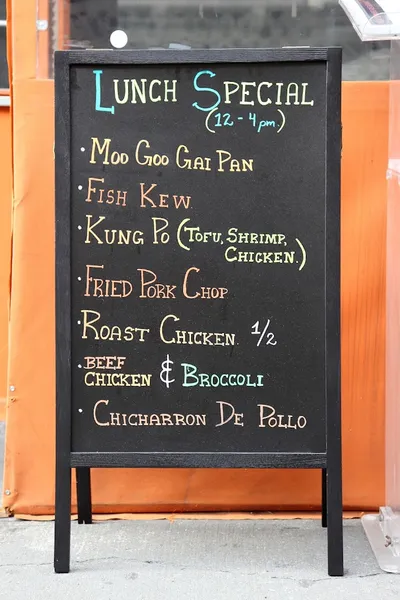 Lunch Special
(12 - 4pm.)
· Moo Goo Gai Pan
· Fish Kew.
· Kung Po (Tofu, Shrimp,
Chicken.)
· Fried Pork Chop
· Roast Chicken. 1/2
· Beef
Chicken & Broccoli
· Chicharron De Pollo